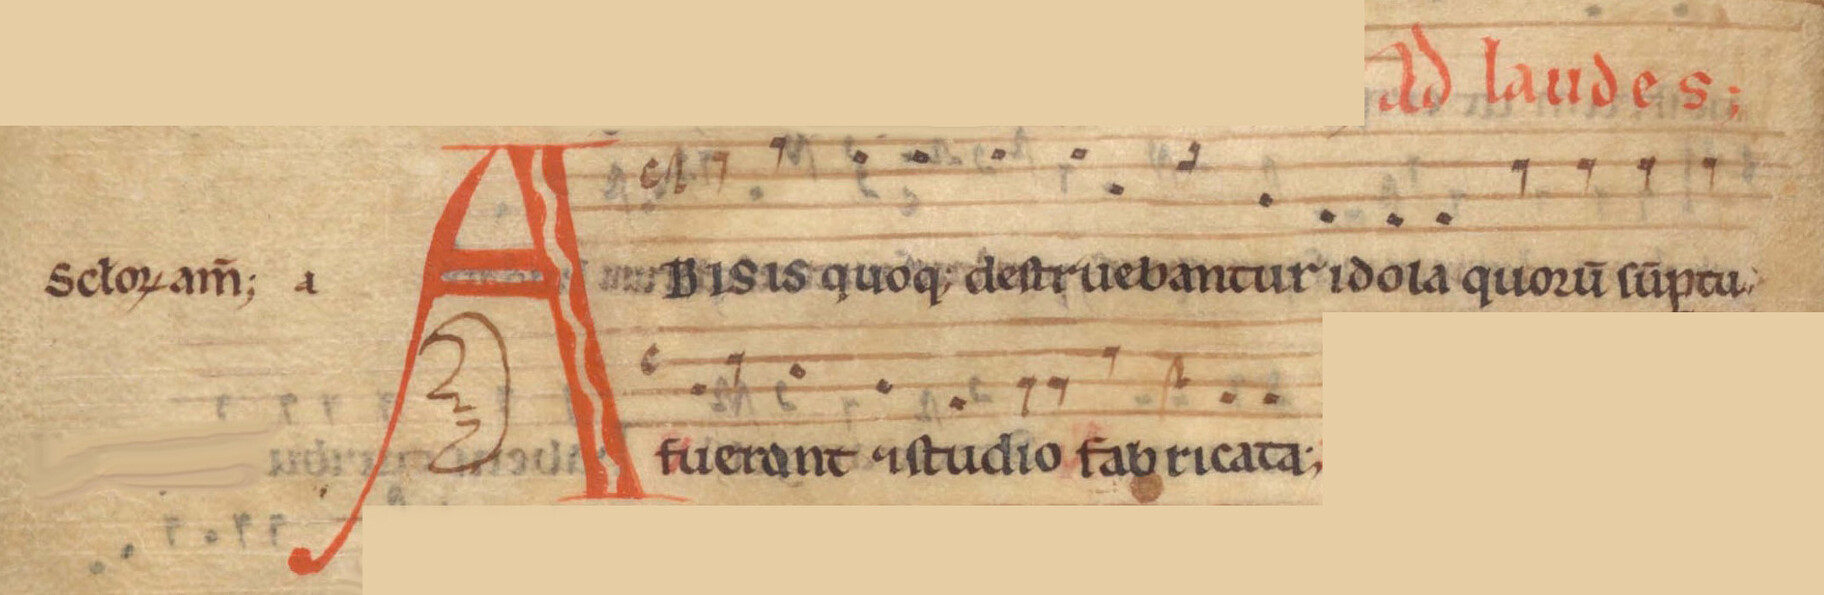 Ad laudes;
Sctoꝝ am̄; a ABISIS quoq; destruebantur idola quorū sūptu
fuerant ⁊ studio fabricata;